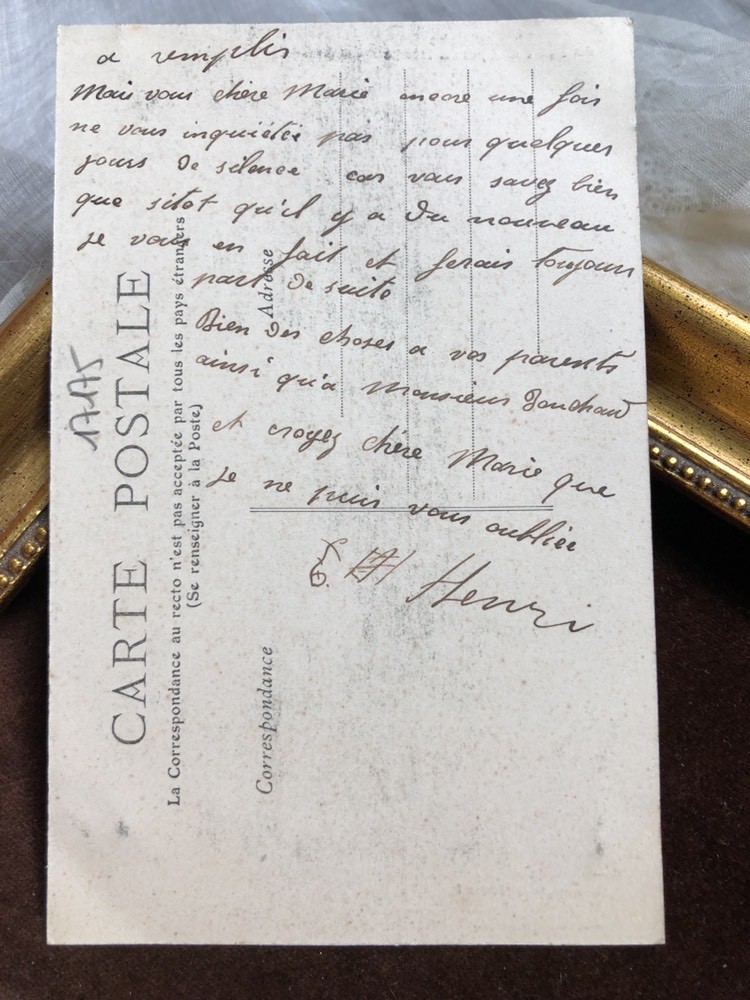 a remplir
Mais vous chère Marie encore une fois
ne vous inquiétée pas pour quelques
jours de silence car vous savez bien
que sitot qu'il y a du nouveau
je vous en fait et ferais toujours
part de suite
Bien des choses a vos parents
ainsi qu'a monsieur
et croyez chère Marie que
je ne puis vous oublier
Henri
CARTE POSTALE
La Correspondance au recto n'est pas acceptée par tous les pays étrangers
(Se renseigner à la Poste)
Correspondance
Adresse